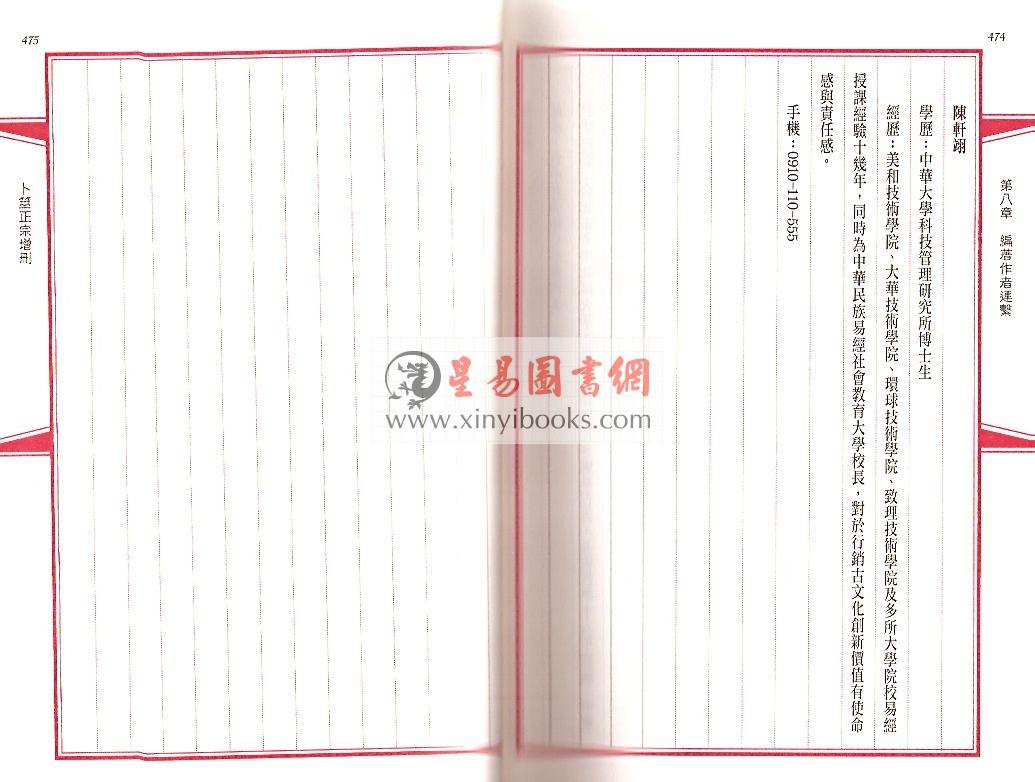 474
第八章　編著作者連繫
陳軒翊
學歷：中華大學科技管理研究所博士生
經歷：美和技術學院、大華技術學院、環球技術學院、致理技術學院及多所大學院校易經
授課經驗十幾年，同時為中華民族易經社會教育大學校長，對於行銷古文化創新價值有使命
感與責任感。
手機：0910-110-555
475
卜筮正宗增刪
星易圖書網
www.xinyibooks.com